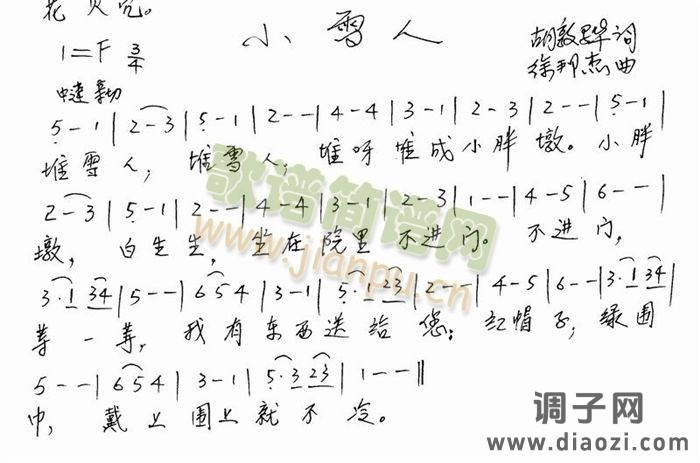 花 灭咒。
小 雪 人
1=F 3/4
胡敦骅词
徐邦杰曲
中速
5 - 1 | 2 - 3 | 5 - 1 | 2 - - | 4 - 4 | 3 - 1 | 2 - 3 | 2 - - | 5 - 1 |
堆 雪 人, 堆 雪 人, 堆 呀 堆 成 小 胖 墩。 小 胖
2 - 3 | 5 - 1 | 2 - - | 4 - 4 | 3 - 1 | 2 - 3 | 1 - - | 4 - 5 | 6 - - |
墩, 白 生 生, 坐 在 院 里 不 进 门。 不 进 门,
3 · 1 34 | 5 - - | 6 5 4 | 3 - 1 | 5 · 1 23 | 2 - - | 4 - 5 | 6 - - | 3 · 1 34 |
等 一 等, 我 有 东 西 送 给 您: 红 帽 子, 绿 围
5 - - | 6 5 4 | 3 - 1 | 5 · 3 23 | 1 - - ‖
巾, 戴 上 围 上 就 不 冷。
歌谱简谱网
www.jianpu.cn
调子网
www.diaozi.com